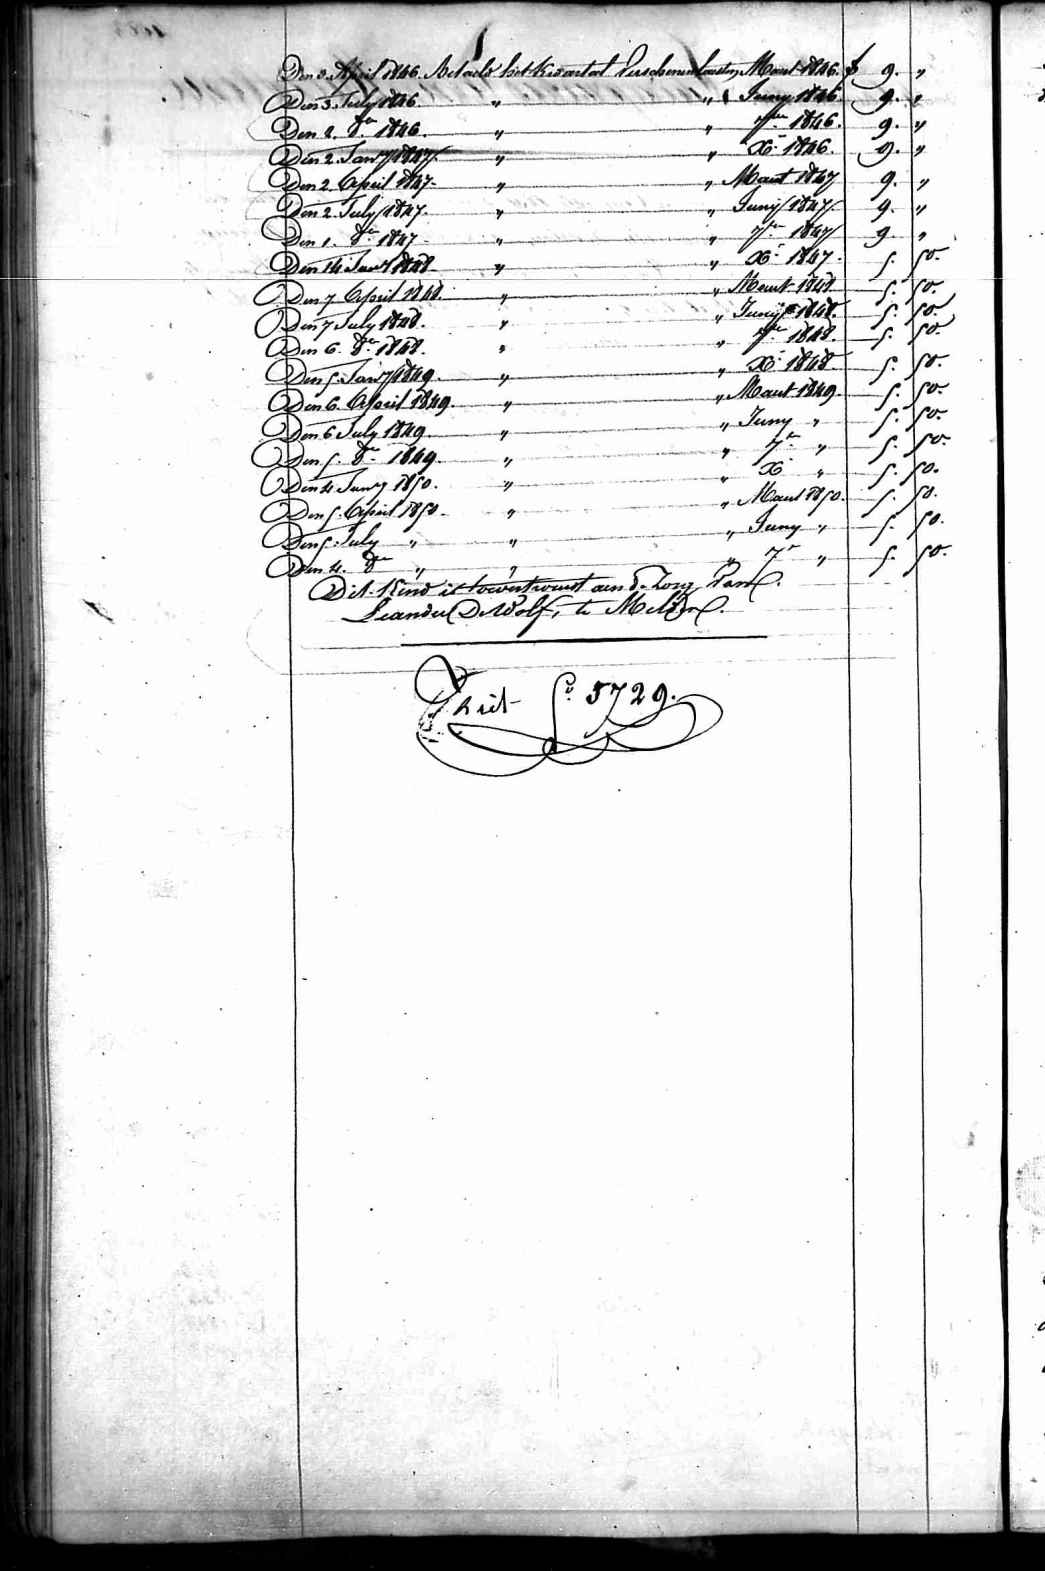 Den 3. April 1846. Betaeld het Kwartael Verschenen laesten Maert 1846. f 9. "
Den 3. July 1846. " " Juny 1846 9. "
Den 2. 8er 1846. " " 7er 1846. 9. "
Den 2. Janry 1847. " " Xr 1846. 9. "
Den 2 April 1847. " " Maert 1847 9. "
Den 2. July 1847. " " Juny 1847. 9. "
Den 1. 8er 1847 " " 7er 1847 9. "
Den 14 Janry 1848. " " Xr 1847. 5. 50.
Den 7 April 1848. " " Maert 1848. 5. 50.
Den 7 July 1848. " " Juny 1848. 5. 50.
Den 6. 8er 1848. " " 7er 1848. 5. 50.
Den 5. Janry 1849. " " Xr 1848 5. 50.
Den 6. April 1849. " " Maert 1849. 5. 50.
Den 6 July 1849. " " Juny " 5. 50.
Den 5. 8er 1849. " " 7er " 5. 50.
Den 4 Janry 1850. " " Xr " 5. 50.
Den 5. April 1850. " " Maert 1850. 5. 50.
Den 5. July " " " Juny " 5. 50.
Den 4. 8er " " " 7r " 5. 50.
Dit Kind is toevertrouwt aen de Zorg van
Leander De Wolf, te
Fo 5729.